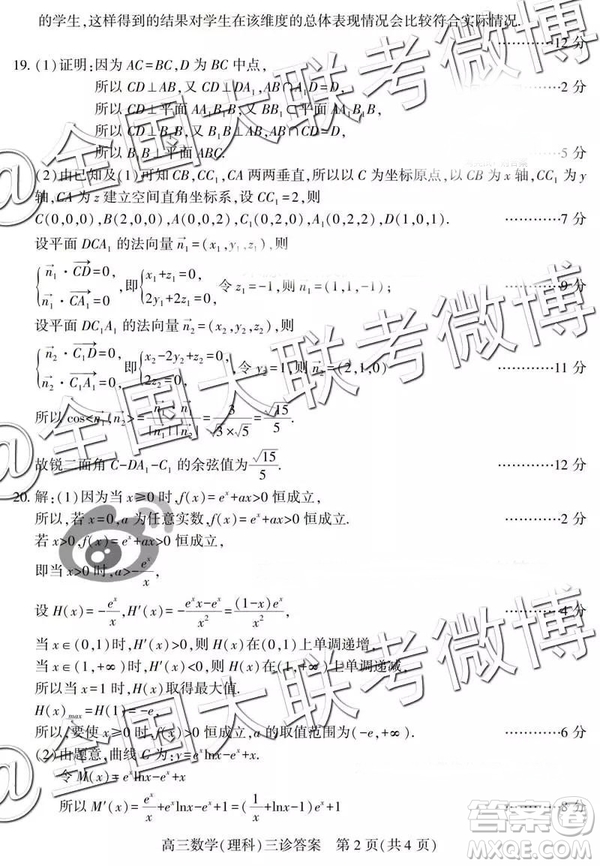 的学生,这样得到的结果对学生在该维度的总体表现情况会比较符合实际情况.
…………12 分
19. (1)证明:因为 AC=BC,D 为 BC 中点,
所以 CD⊥AB,又 CD⊥DA₁,AB∩A₁D=D, …………2 分
所以 CD⊥平面 AA₁B₁B,
所以 CD⊥B₁B,又 B₁B⊥AB,AB∩CD=D,
所以 B₁B⊥平面 ABC. …………5 分
(2)由已知及(1)可知 CB,CC₁,CA 两两垂直,所以以 C 为坐标原点,以 CB 为 x 轴,CC₁ 为 y
轴,CA 为 z 建立空间直角坐标系,设 CC₁=2,则
C(0,0,0),B(2,0,0),A(0,0,2),C₁(0,2,0),A₁(0,2,2),D(1,0,1). …………7 分
设平面 DCA₁ 的法向量 n₁=(x₁,y₁,z₁),则
{n₁·CD=0, n₁·CA₁=0, 即{x₁+z₁=0, 2y₁+2z₁=0, 令 z₁=-1,则 n₁=(1,1,-1); …………9 分
设平面 DC₁A₁ 的法向量 n₂=(x₂,y₂,z₂),则
{n₂·C₁D=0, n₂·C₁A₁=0, 即{x₂-2y₂+z₂=0, 2z₂=0, 令 y₂=1,则 n₂=(2,1,0) …………11 分
所以 cos<n₁,n₂>=n₁·n₂/|n₁||n₂|=3/(√3×√5)=√15/5.
故锐二面角 C-DA₁-C₁ 的余弦值为√15/5. …………12 分
20. 解:(1)因为当 x≥0 时,f(x)=eˣ+ax>0 恒成立,
所以,若 x=0,a 为任意实数,f(x)=eˣ+ax>0 恒成立. …………2 分
若 x>0,f(x)=eˣ+ax>0 恒成立,
即当 x>0 时,a>-eˣ/x,
设 H(x)=-eˣ/x,H′(x)=-(eˣx-eˣ)/x²=(1-x)eˣ/x², …………4 分
当 x∈(0,1)时,H′(x)>0,则 H(x)在(0,1)上单调递增,
当 x∈(1,+∞)时,H′(x)<0,则 H(x)在(1,+∞)上单调递减,
所以当 x=1 时,H(x)取得最大值.
H(x)max=H(1)=-e,
所以,要使 x≥0 时,f(x)>0 恒成立,a 的取值范围为(-e,+∞). …………6 分
(2)由题意,曲线 C 为:y=eˣlnx-eˣ+x.
令 M(x)=eˣlnx-eˣ+x,
所以 M′(x)=eˣ/x+eˣlnx-eˣ+1=(1/x+lnx-1)eˣ+1, …………8 分
高三数学(理科)三诊答案 第 2 页(共 4 页)
@全国大联考微博
@全国大联考微博
@全国大联考微博